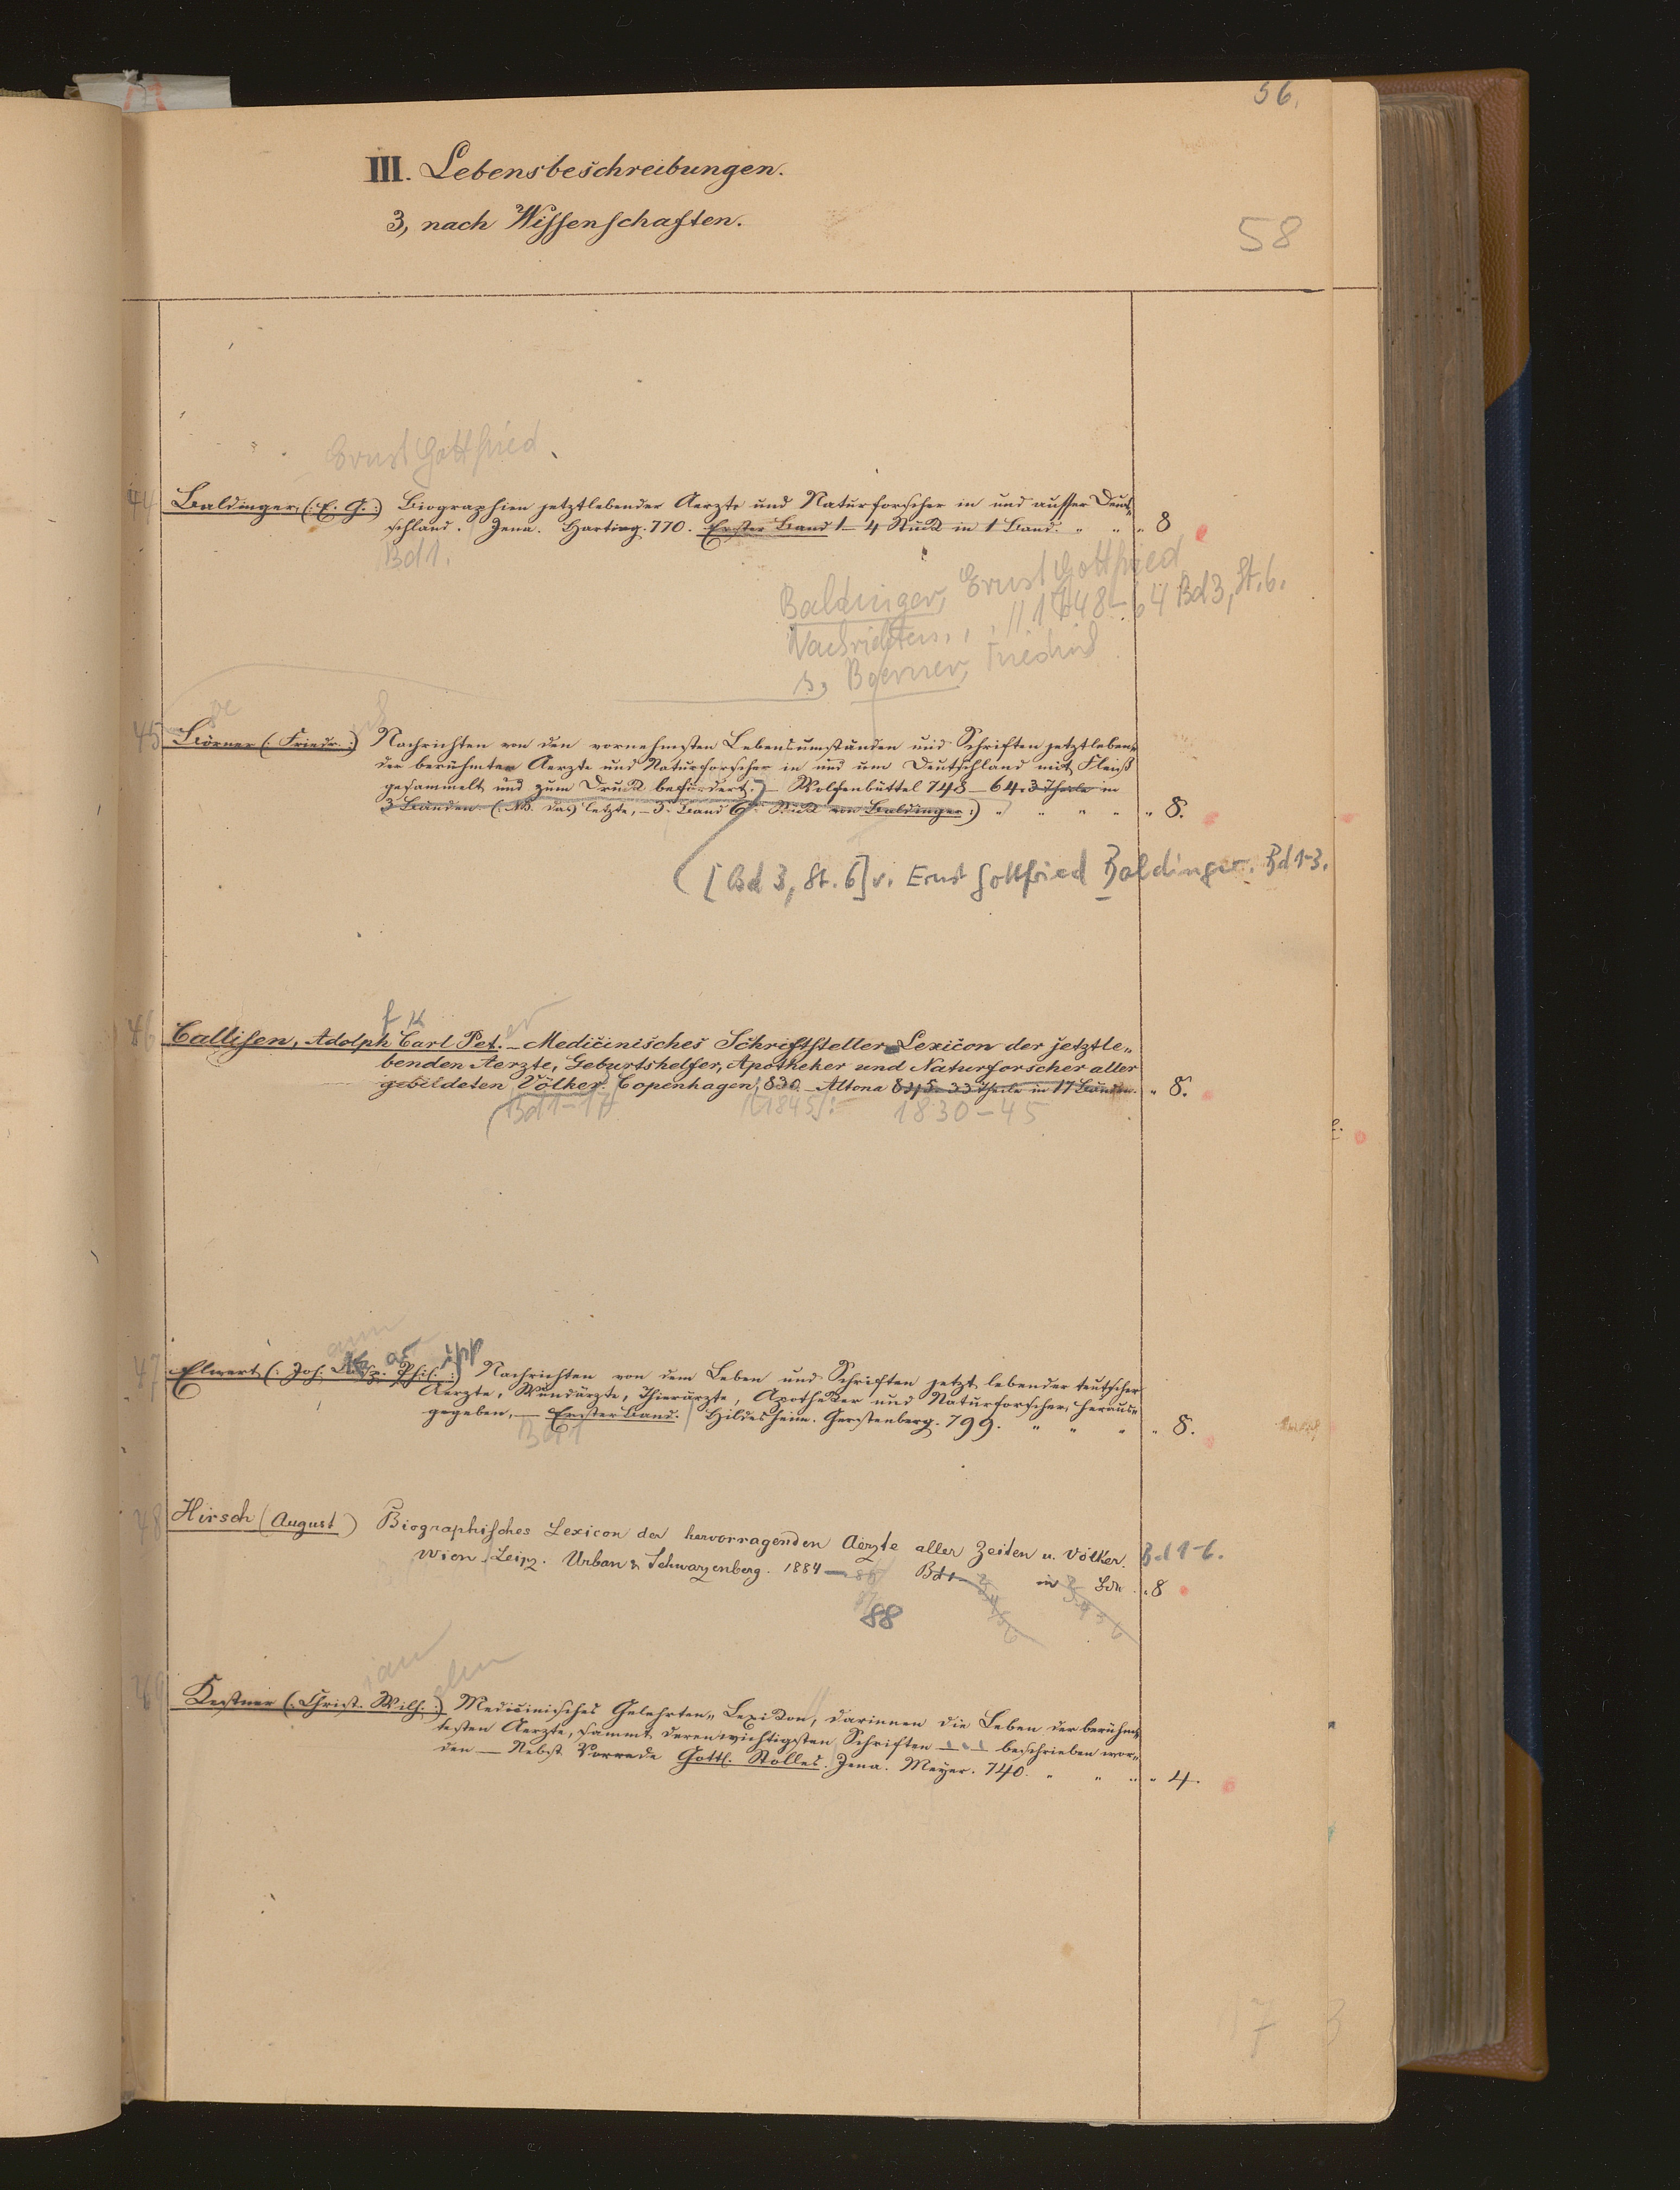 56.
III. Lebensbeschreibungen.
3, nach Wissenschaften.
58
Ernst Gottfried
44 Baldinger, (: E. G. :) Biographien jetztlebender Aerzte und Naturforscher in und ausser Deut„
schland. Jena. Hartung. 770. Erster Band 1–4 Stück in 1 Band. " " " 8
Bd 1.
Baldinger, Ernst Gottfried
Nachrichten . . . 1748–64 Bd 3, St. 6.
s. Boerner, Friedrich
oe
45 Börner (: Friedr. :) Nachrichten von den vornehmsten Lebensumständen und Schriften jetztleben„
der berühmter Aerzte und Naturforscher in und um Deutschland mit Fleiß
gesammelt und zum Druck befördert. – Wolfenbüttel 748–64. 3 Theile in
3 Bänden. (: NB. das letzte, – 3. Band 6. Stück von Baldinger :) " " " " " 8.
([Bd 3, St. 6] v. Ernst Gottfried Baldinger. Bd 1-3.
f K er
46 Callisen, Adolph Carl Pet. – Medicinisches Schriftsteller Lexicon der jetztle„
benden Aerzte, Geburtshelfer, Apotheker und Naturforscher aller
gebildeten Völker. Copenhagen, 830 – Altona 845. 33 Theile in 17 Bänden. " 8.
(Bd 1–17 [1845]: 1830–45
ann as ipp
47 Elwert (: Joh. Casp. Phil. :) Nachrichten von dem Leben und Schriften jetzt lebender teutscher
Aerzte, Wundärzte, Thierärzte, Apotheker und Naturforscher, heraus„
gegeben, – Erster Band. Hildesheim. Gerstenberg. 799. " " " " 8.
Bd 1
48 Hirsch (August) Biographisches Lexicon der hervorragenden Aerzte aller Zeiten u. Völker. Bd 1-6.
Wien. Leipz. Urban & Schwarzenberg. 1884 – 86 Bd 1– 2 3 4 5 6 in 2 3 4 5 6 Bdn. " 8
88
ian elm
49 Kestner (: Christ. Wilh. :) Medicinisches Gelehrten„ Lexikon, darinnen die Leben der berühm„
testen Aerzte, sammt deren wichtigsten Schriften – – – beschrieben wor„
den – Nebst Vorrede Gottl. Stolles. Jena. Meyer. 740. " " " " 4.